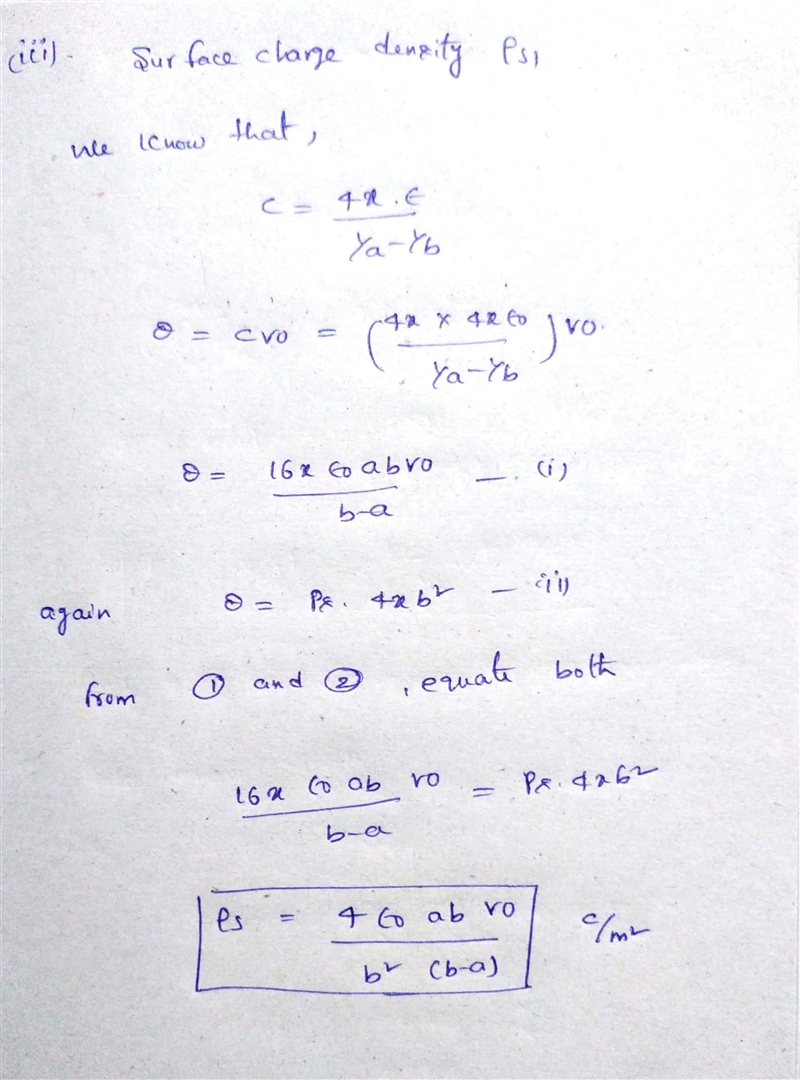 (iii). Surface charge density ρs,
we know that,
C = 4π.ε / 1/a-1/b
Q = CV0 = (4π × 4πε0 / 1/a-1/b) V0.
Q = 16π ε0 ab V0 / b-a — (i)
again Q = ρs. 4πb² — (ii)
from ① and ②, equate both
16π ε0 ab V0 / b-a = ρs. 4πb²
ρs = 4 ε0 ab V0 / b² (b-a) C/m²